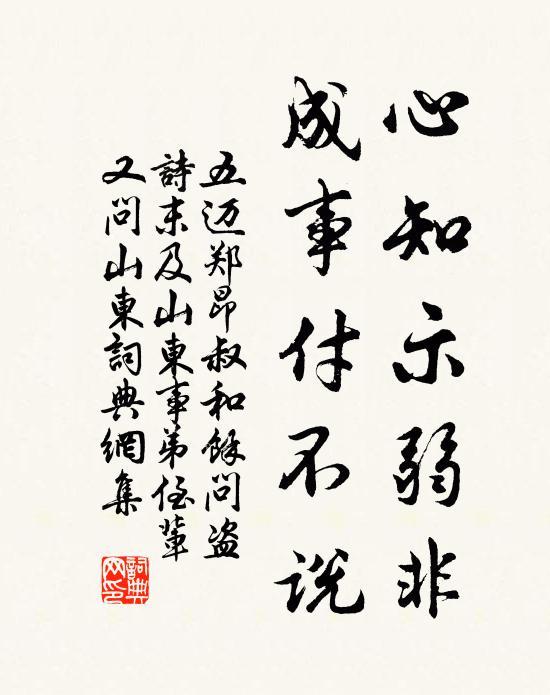 心知示弱非
成事付不说
五迈郑昂叔和馀问盗
詩末及山東事弟侄輩
又问山東詞典網集
詞典
网印